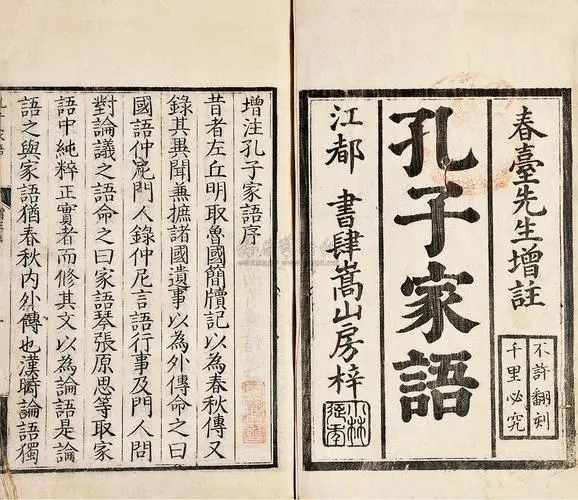 春臺先生增註
孔子家語
江都 書肆嵩山房梓
不許翻刻
千里必究
增注孔子家語序
昔者左丘明取魯國簡牘記以為春秋傳又
錄其異聞兼摭諸國遺事以為外傳命之曰
國語仲尼門人錄仲尼言語行事及門人問
對論議之語命之曰家語琴張原思等取家
語中純粹正實者而修其文以為論語是論
語之與家語猶春秋內外傳也漢時論語獨